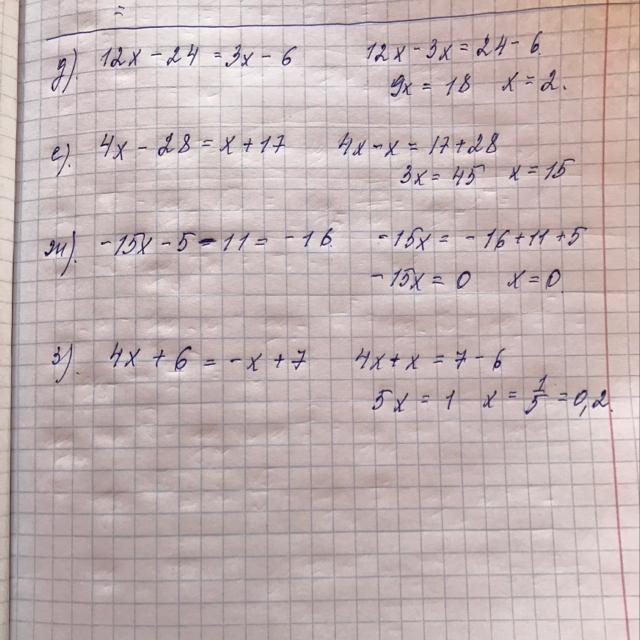 =
д). 12x - 24 = 3x - 6 12x - 3x = 24 - 6
9x = 18 x = 2.
е). 4x - 28 = x + 17 4x - x = 17 + 28
3x = 45 x = 15
ж). -15x - 5 - 11 = -16 -15x = -16 + 11 + 5
-15x = 0 x = 0.
з). 4x + 6 = -x + 7 4x + x = 7 - 6
5x = 1 x = 1/5 = 0,2.